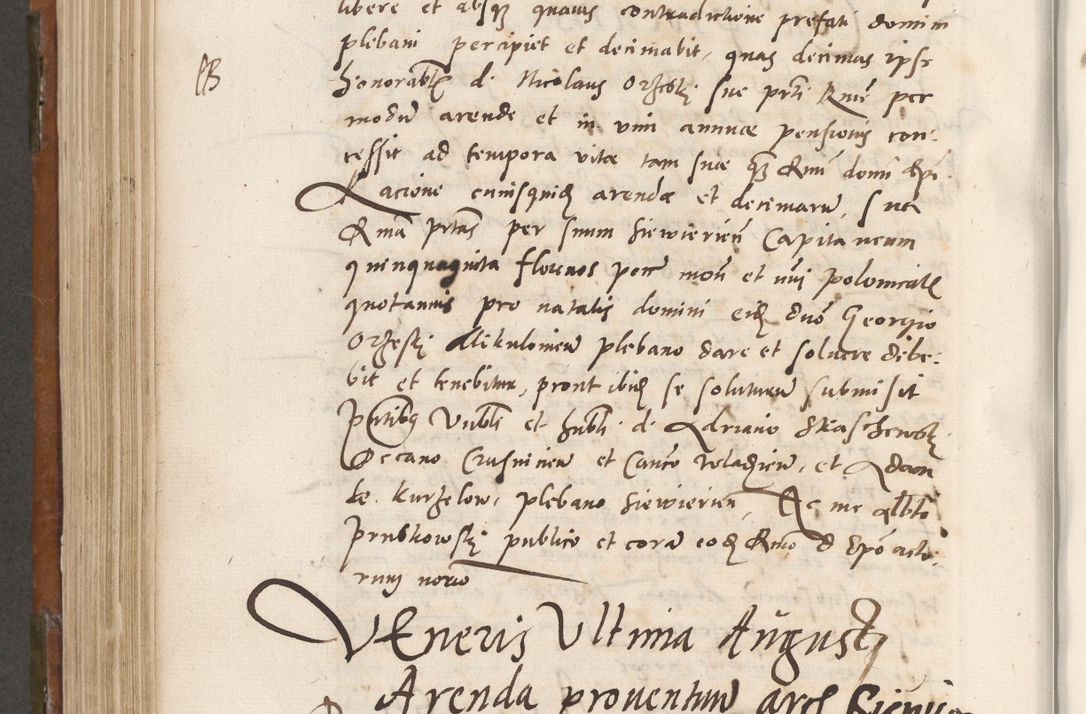 libere et absq₃ quavis contradictione prefati domini
plebani percipiet et decimabit, quas decimas ipse
honorabł d. Nicolaus Orzeski sue prti Rme per
modū arende et in vim annuæ pensionis con-
cessit ad tempora vitæ tam suæ q₃ Rmi domi Epi.
Racione cuiusquidē arendæ et decimarū, sua
Rma prtas per suum Siewierien Capitaneum
quinquaginta florenos pecc mon et nūi polonicał
quotannis pro natalis domini eidē dno Georgio
Orzeski Mikulovien plebano dare et soluere debe-
bit et tenebitur, prout ibidē se soluturū submisit
Prntibq Vnbłi et hnbłi d. Adriano Skarschewski
Decano Crusvicien et Canco Wladien, et Adam
de Kurzelow, plebano Siewierien, Ac me Albto
Prubkowski publico et corā eodē Rmo d Epo acto-
rum notrio
VEneris Vltima Augusti
Arenda proventuū arch